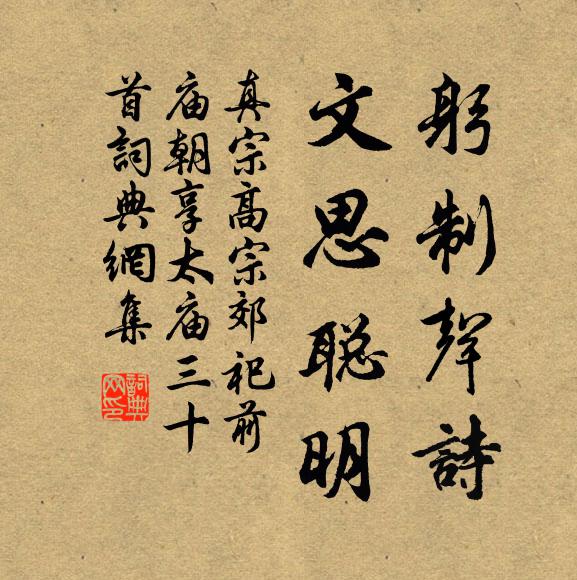 躬制聲詩
文思聰明
真宗高宗郊祀前
庙朝享太庙三十
首詞典網集
詞典网印